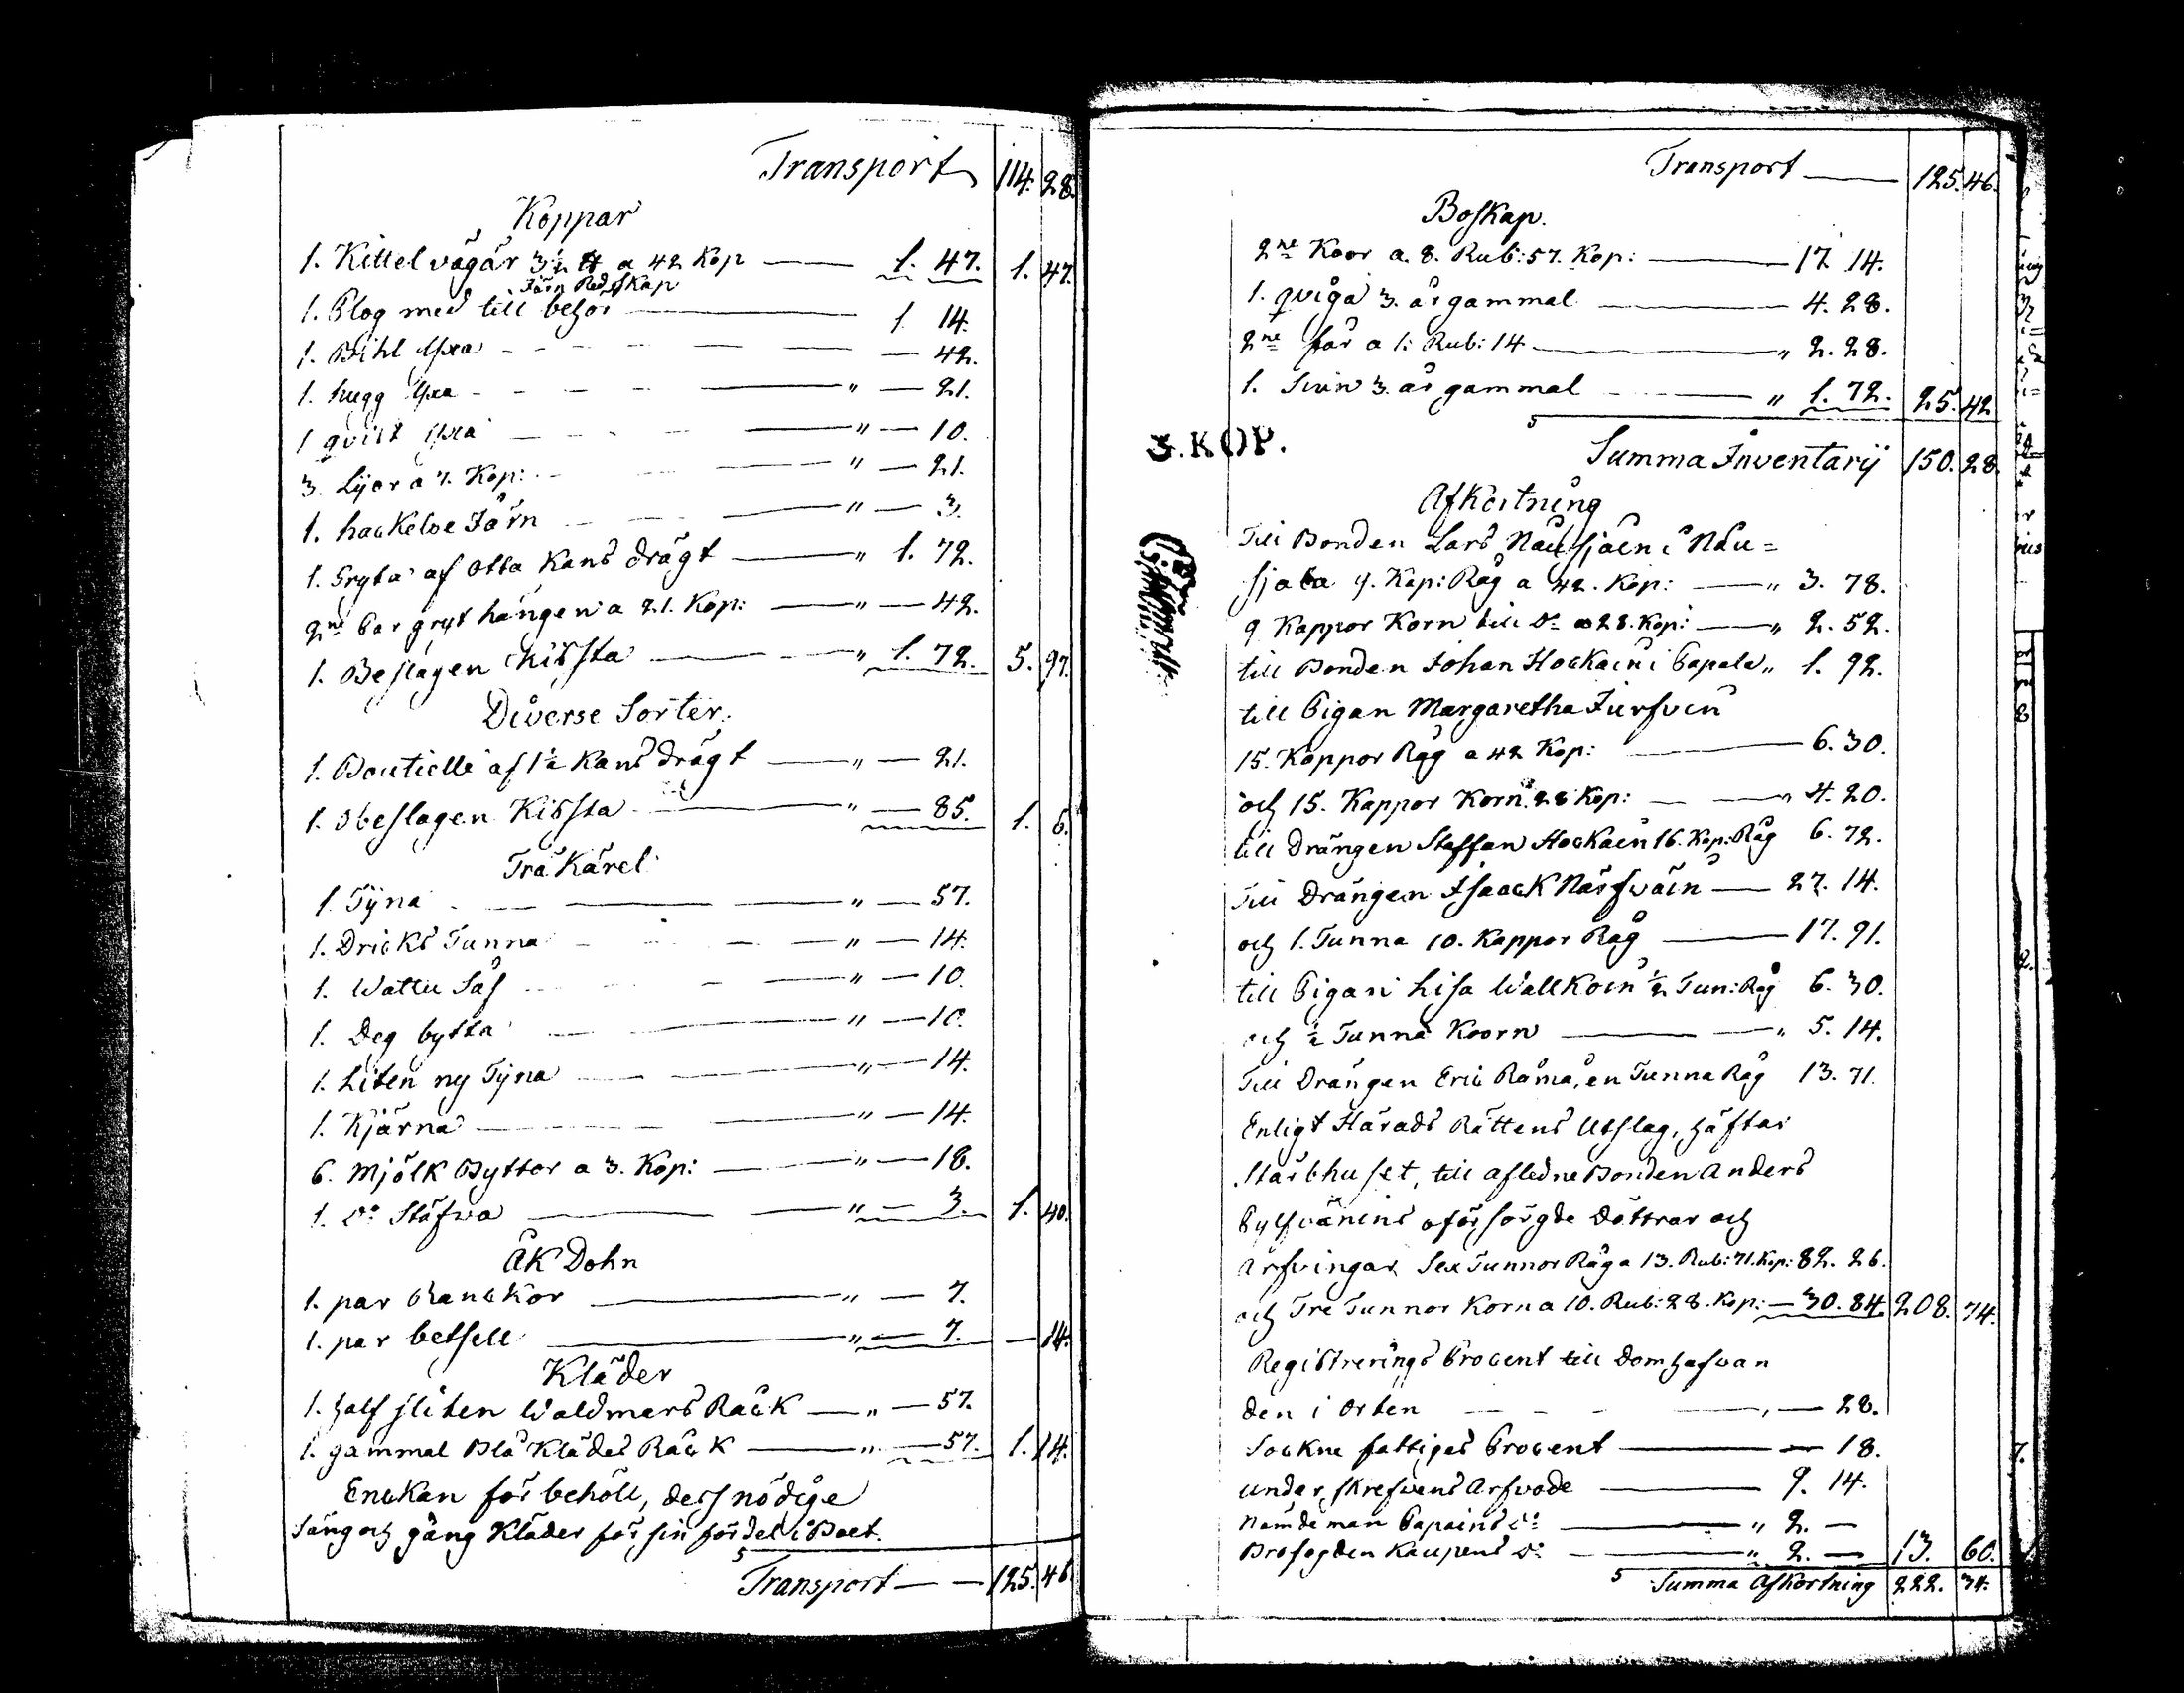 Transport 114. 28.
Koppar
1. Kittel vägär 3½ ℔ a 42 Kop — 1. 47. 1. 47.
Järn Redskap
1. Plog med till behör — 1 14.
1. Bihl Yxa — 42.
1. hugg Yxa — " — 21.
1 qvist Yxa — " — 10.
3. Lijor a 7. Kop: — " — 21.
1. hackelse Järn — " — 3.
1. Gryta af Otta Kans drägt — " 1. 72.
2ne Par gryt hängen a 21. Kop: — " — 42.
1. Beslagen Kissta — " 1. 72. 5. 97.
Diverse Sorter.
1. Boutielle af 1½ Kans drägt — " — 21.
1. Obeslagen Kissta — " — 85. 1. 6.
Trä Kärel
1. Tyna — " — 57.
1. Dricks Tunna — " — 14.
1. Wattu Sås — " — 10.
1. Deg bytta — " — 10.
1. Liten ny Tyna — " — 14.
1. Kjärna — " — 14.
6. Mjölk Byttor a 3. Kop: — " — 18.
1. Do Stäfwa — " — 3. 1. 40.
ÅK Dohn
1. par Ranckor — " — 7.
1. par betsell — " — 7. — 14.
Kläder
1. half sliten Waldmars Råck — " — 57.
1. gammal Blå Klädes Råck — " — 57. 1. 14.
Enckan för behöll, dess nödige
Säng och gång Kläder för sin fördel i Boet.
Transport — 125. 46.
Transport — 125. 46.
Boskap.
2ne Koor a. 8. Rub: 57. Kop: — 17. 14.
1. qviga 3. år gammal — 4. 28.
2ne får a 1: Rub: 14 — " 2. 28.
1. Svin 3. år gammal — " 1. 72. 25. 42
3. KOP.
Summa Inventarij 150. 28.
Afkortning
Till Bonden Lars Nausjäen i Nau=
sjala 9. Kap: Råg a 42. Kop: — " 3. 78.
9 Kappor Korn till Do a 28. Kop: — " 2. 52.
till Bonden Johan Hockain i Papala " 1. 92.
till Pigan Margaretha Jurfvin
15. Kappor Råg a 42 Kop: — 6. 30.
och 15. Kappor Korn 28 Kop: — " 4. 20.
till Drängen Staffan Hockain 16. Kap: Råg 6. 72.
Till Drängen Isaack Närfväin — 27. 14.
och 1. Tunna 10. Kappor Råg — 17. 91.
till Pigan Lisa Wallkoin ½ Tun: Råg 6. 30.
och ½ Tunna Koorn — " 5. 14.
Till Drängen Eric Råmå, en Tunna Råg 13. 71.
Enligt Härads Rättens Utslag, häftar
Stärbhuset, till afledne Bonden Anders
Pylfvänens oförsörgde Döttrar och
Arfvingar Sex Tunnor Råg a 13. Rub: 71. Kop: 82. 26.
och Tre Tunnor Korn a 10. Rub: 28. Kop: — 30. 84. 208. 74.
Registrerings Procent till Domhafvan
den i Orten — " — 28.
Sockne fattiges Procent — 18.
under skrefvens Arfvode — 9. 14.
Nämdeman Papains do — " 2. —
Brofogden Kaupens Do — " 2. — 13. 60.
Summa Afkortning 222. 34.